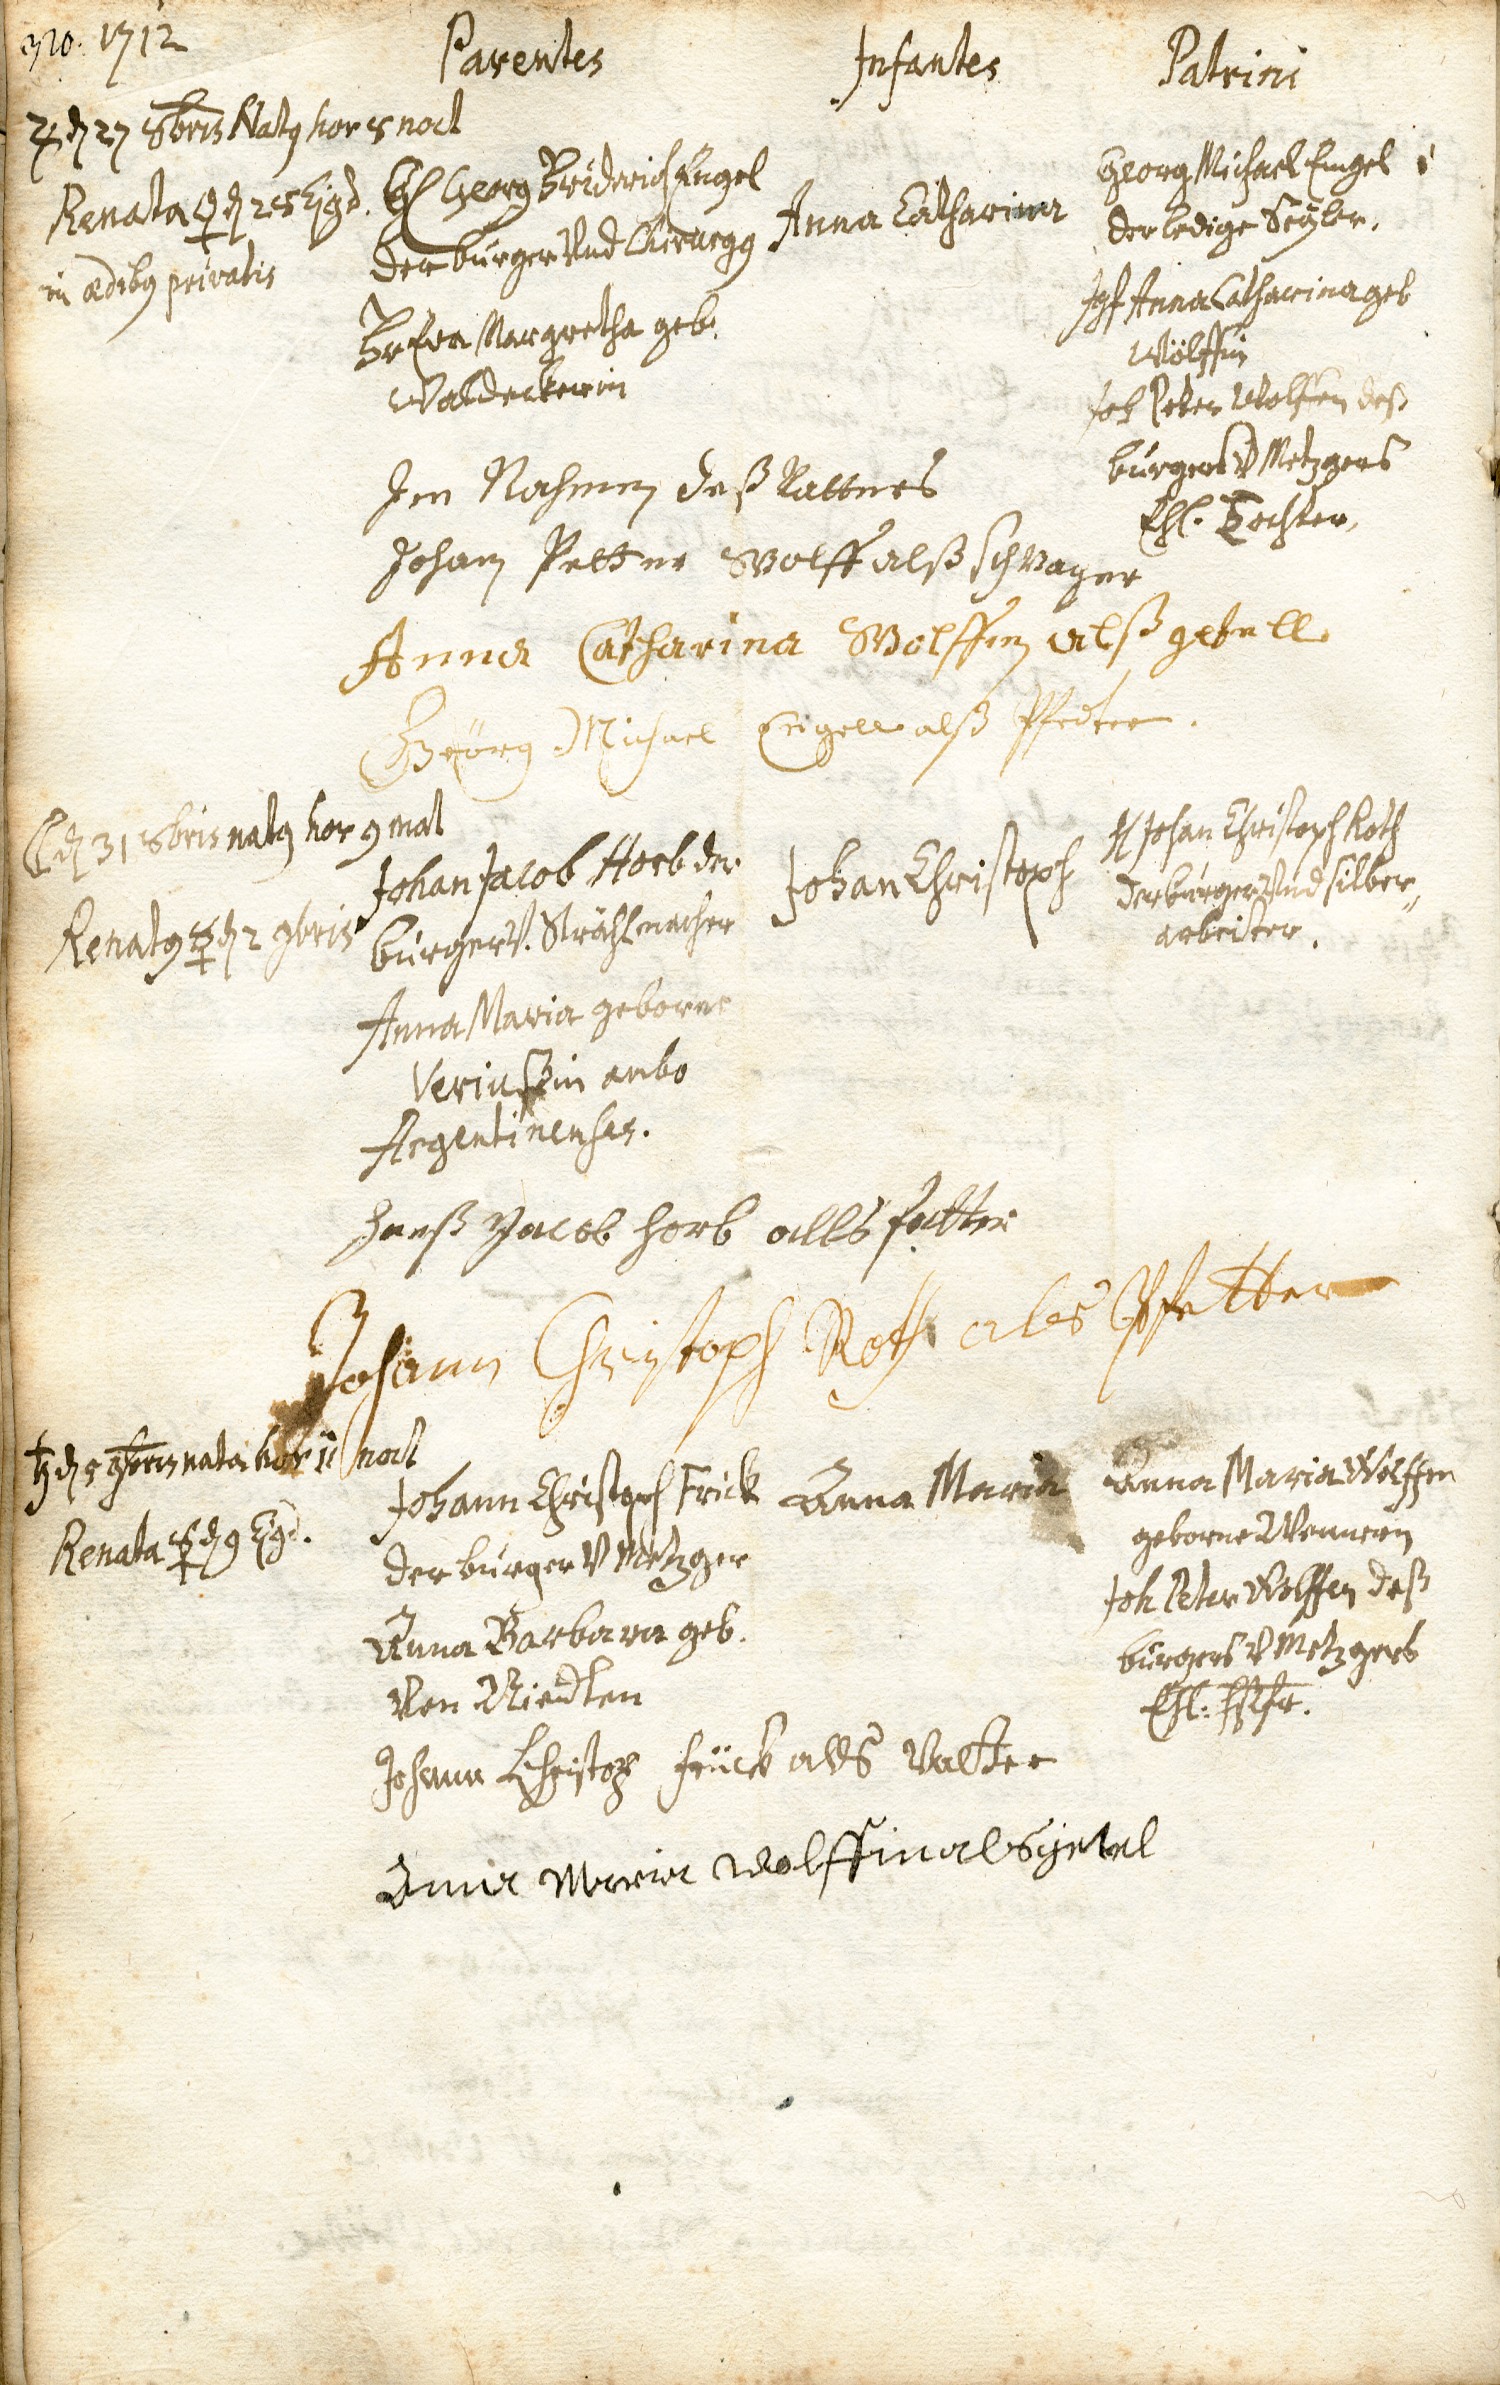 Ao. 1712
Parentes
Infantes
Patrini
♃ d 27 8bris Natq hor 5 noct
Renata ♀ d 28 Ejgd.
in ædibq privatis
H Georg Friderich Engel
der burger Und Chirurgq
Fr Eva Margretha geb.
Waldeckerin
Anna Catharina
Georg Michael Engel
der ledige Seyler.
Jgf Anna Catharina geb
Wölffin
Joh Peter Wolffen deß
burgers V Metzgers
Ehl. Tochter.
Im Nahmen deß Vatters
Johann Petter Wolff alß schwager
Anna Catharina Wolffin alß gettell
Geörg Michael Engell alß Pfetter.
☾ d 31 8bris natq hor 9 mat
Renatq ☿ d 2 9bris
Johan Jacob Horb der
burger V. Strählmacher
Anna Maria geborne
ambo
Argentinenses.
Johan Christoph
H Johan Christoph Roth
der burger Und silber„
arbeiter.
Hanß Jacob Horb alls fatter
Johann Christoph Roth als Pfetter
♄ d 5 9bris nata hor 11 noct
Renata ☿ d 9 Ejgd.
Johann Christoph Frick
der burger V Metzger
Anna Barbara geb.
Von Riedten
Anna Maria
Anna Maria Wolffin
geborne
Joh Peter Wolffen deß
burgers V Metzgers
Ehl. Hßfr.
Johann Christoph frück alls Vatter
Anna Maria Wolffin als getel